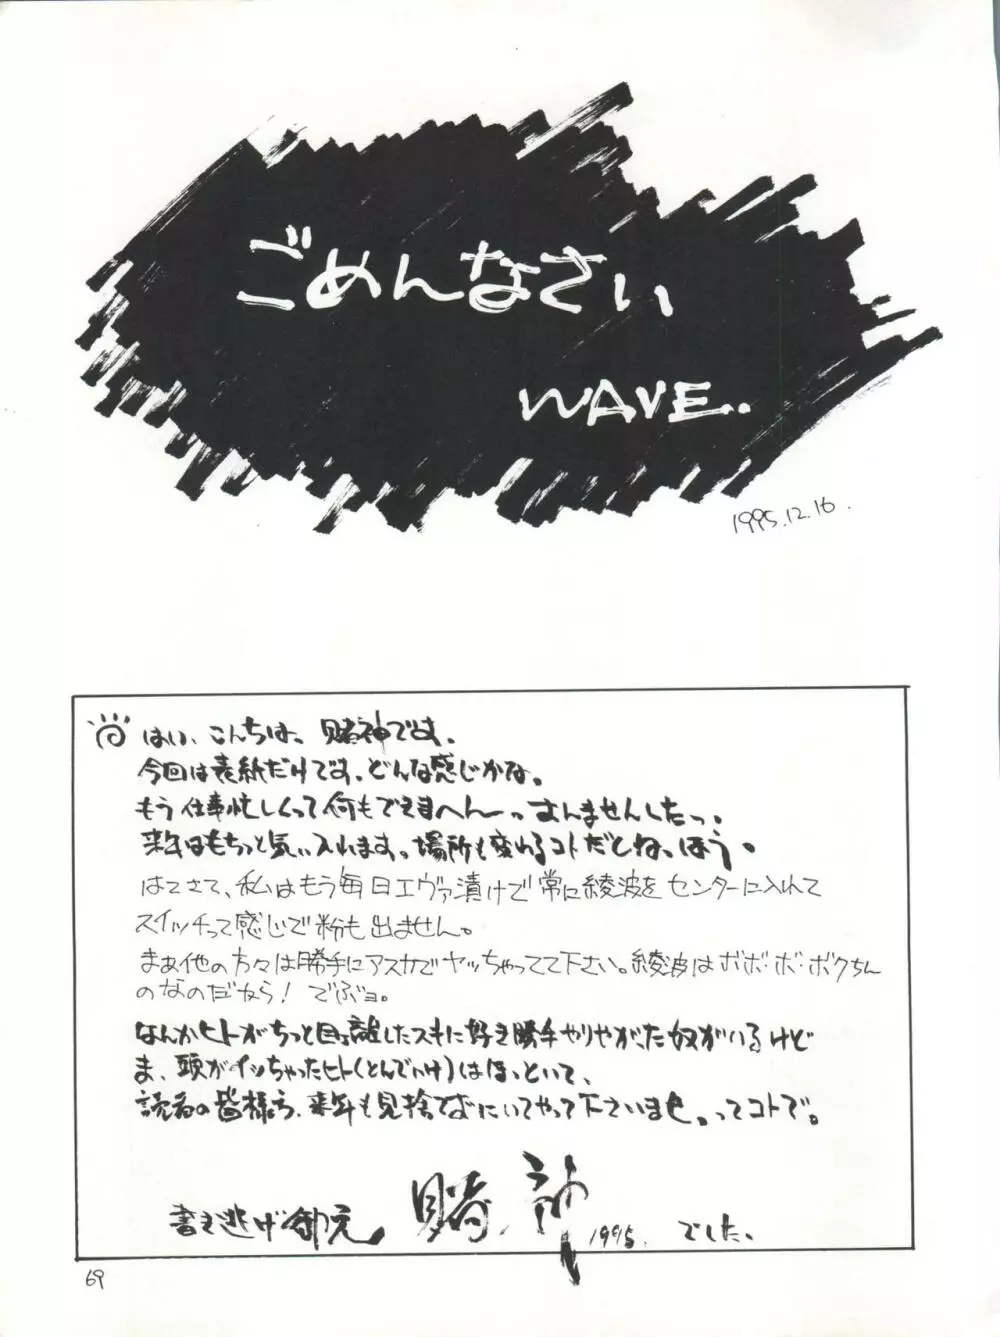 ごめんなさい
WAVE.
1995.12.16.
はい、こんちは、賭神です。
今回は表紙だけです。どんな感じかな。
もう仕事忙しくって何もできまへんーっすんませんしたっ。
来年はもちっと気ぃ入れます。場所も変わるコトだしね。ほう。
はてさて、私はもう毎日エヴァ漬けで常に綾波をセンターに入れて
スイッチって感じで粉も出ません。
まぁ他の方々は勝手にアスカでヤッちゃってて下さい。綾波はボボ・ボ・ボクちん
のなのだから！ でぶョ。
なんかヒトがちっと目ェ離したスキに好き勝手やりやがった奴がいるけど
ま、頭がイッちゃったヒト(とんでいけ)はほっといて、
読者の皆様方、来年も見捨てずにいてやって下さいませ。ってコトで。
書き逃げ御免 賭神 1995. でした。
69